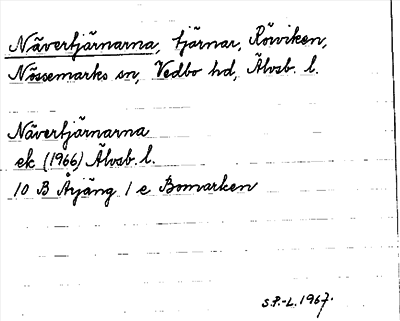 Nävertjärnarna, tjärnar, Röiviken,
Nössemarks sn, Vedbo hd, Älvsb. l.
Nävertjärnarna
ek (1966) Älvsb. l.
10 B Årjäng 1 e Bomarken
S.P.-L. 1967.